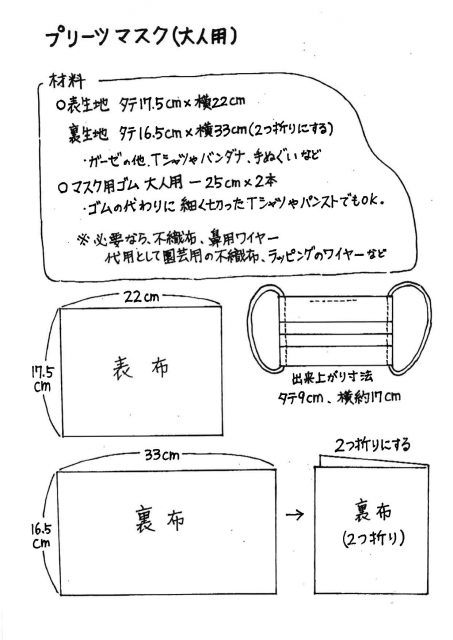 プリーツマスク(大人用)
材料
○表生地 タテ17.5cm×横22cm
裏生地 タテ16.5cm×横33cm(2つ折りにする)
・ガーゼの他、TシャツやバンダナR、手ぬぐいなど
○マスク用ゴム 大人用 ー 25cm×2本
・ゴムの代わりに 細く切ったTシャツやパンストでもOK。
※必要なら、不織布、鼻用ワイヤー
代用として園芸用の不織布、ラッピングのワイヤーなど
22cm
17.5
cm
表布
出来上がり寸法
タテ9cm、横約17cm
33cm
16.5
cm
裏布
→
2つ折りにする
裏布
(2つ折り)